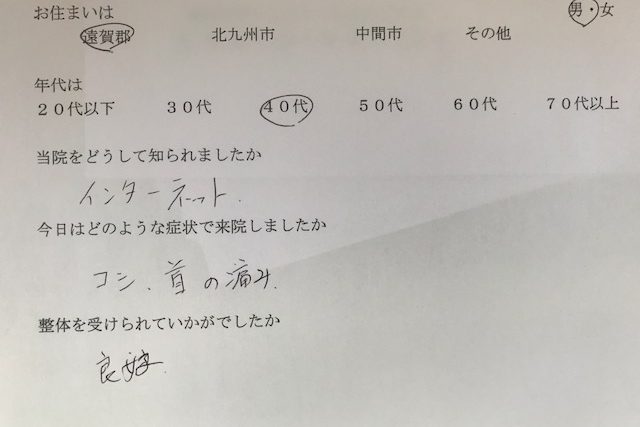 お住まいは 男・女
遠賀郡 北九州市 中間市 その他
年代は
20代以下 30代 40代 50代 60代 70代以上
当院をどうして知られましたか
インターネット.
今日はどのような症状で来院しましたか
コシ、首の痛み.
整体を受けられていかがでしたか
良好